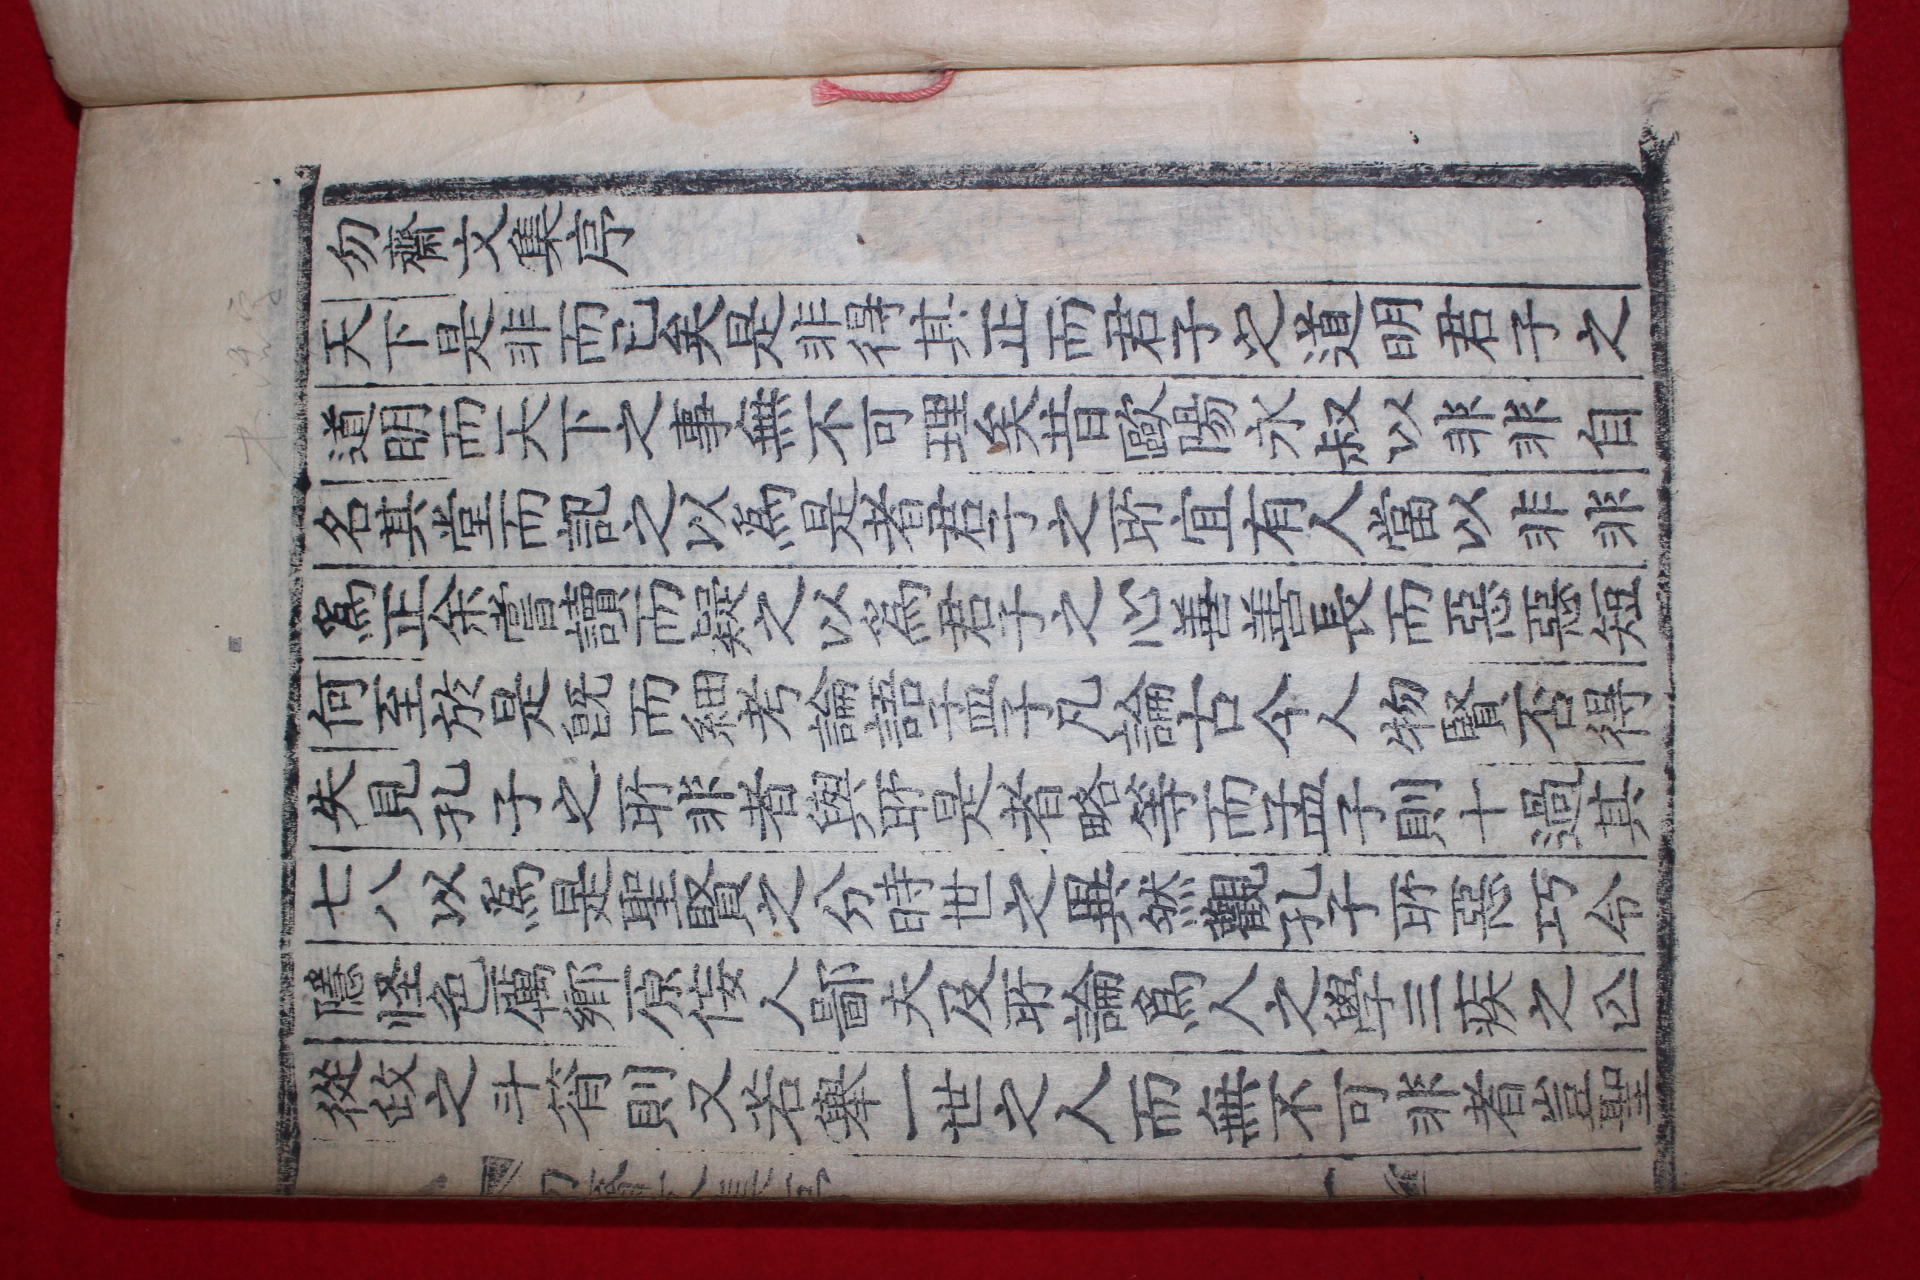 勿齋文集序
天下是非而已矣是非得其正而君子之道明君子之
道明而天下之事無不可理矣昔歐陽永叔以非非自
名其堂而記之以爲是者君子之所宜有人當以非非
爲正余嘗讀而疑之以爲君子之心善善長而惡惡短
何至於是旣而細考論語孟子凡論古今人物賢否得
失見孔子之所非者與所是者略等而孟子則十過其
七八以爲是聖賢之分時世之異然觀孔子所惡巧令
隱怪色厲鄕原佞人鄙夫及所論爲人之學三疾之亾
從政之斗筲則又若擧一世之人而無不可非者豈聖